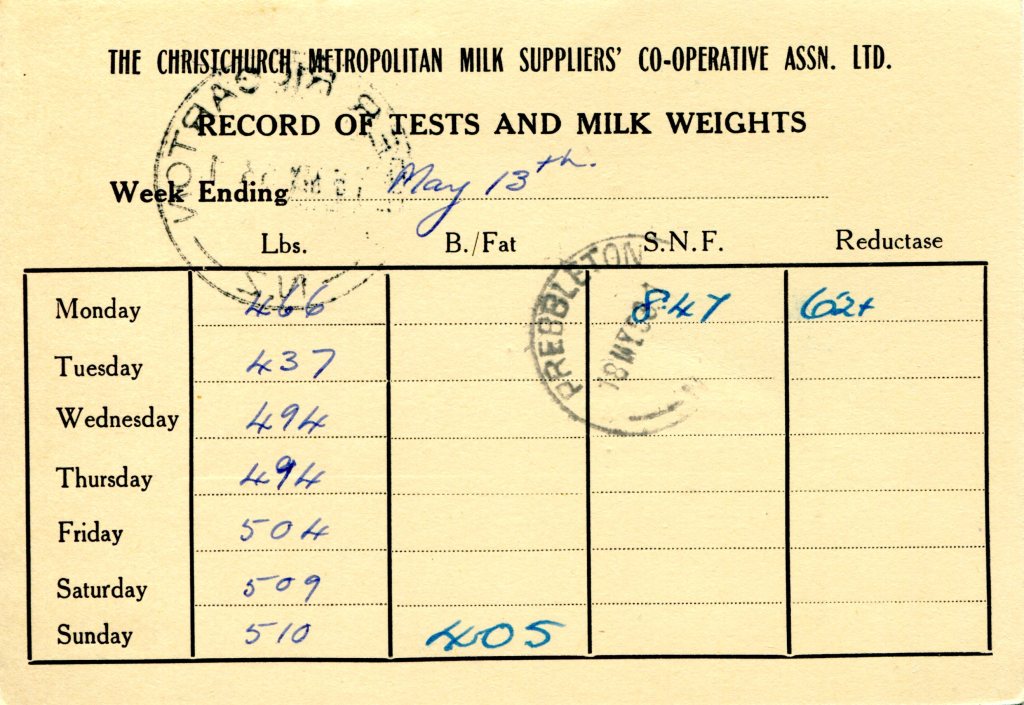 THE CHRISTCHURCH METROPOLITAN MILK SUPPLIERS' CO-OPERATIVE ASSN. LTD.
RECORD OF TESTS AND MILK WEIGHTS
Week Ending May 13th.
Lbs. B./Fat S.N.F. Reductase
PREBBLETON
18 MY
Monday 466 8.47 62+
Tuesday 437
Wednesday 494
Thursday 494
Friday 504
Saturday 509
Sunday 510 405